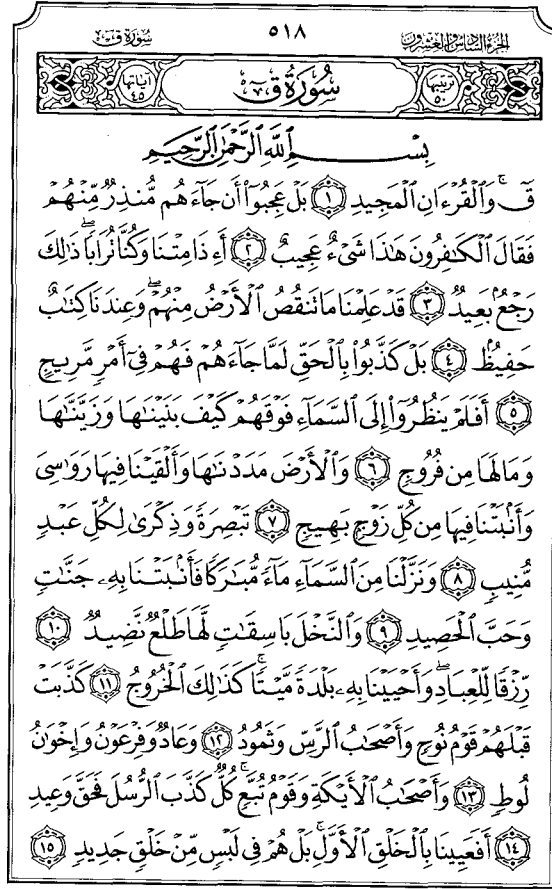 سُورَةُ قٓ ٥١٨ الجُزْءُ السَّادِسُ وَالعِشْرُونَ
آيَاتُهَا ٤٥ سُورَةُ قٓ تَرتيبُهَا ٥٠
بِسْمِ ٱللَّهِ ٱلرَّحْمَٰنِ ٱلرَّحِيمِ
قٓۚ وَٱلْقُرْءَانِ ٱلْمَجِيدِ ١ بَلْ عَجِبُوٓا۟ أَن جَآءَهُم مُّنذِرٌ مِّنْهُمْ
فَقَالَ ٱلْكَٰفِرُونَ هَٰذَا شَىْءٌ عَجِيبٌ ٢ أَءِذَا مِتْنَا وَكُنَّا تُرَابًاۖ ذَٰلِكَ
رَجْعٌۢ بَعِيدٌ ٣ قَدْ عَلِمْنَا مَا تَنقُصُ ٱلْأَرْضُ مِنْهُمْۖ وَعِندَنَا كِتَٰبٌ
حَفِيظٌۢ ٤ بَلْ كَذَّبُوا۟ بِٱلْحَقِّ لَمَّا جَآءَهُمْ فَهُمْ فِىٓ أَمْرٍ مَّرِيجٍ
٥ أَفَلَمْ يَنظُرُوٓا۟ إِلَى ٱلسَّمَآءِ فَوْقَهُمْ كَيْفَ بَنَيْنَٰهَا وَزَيَّنَّٰهَا
وَمَا لَهَا مِن فُرُوجٍ ٦ وَٱلْأَرْضَ مَدَدْنَٰهَا وَأَلْقَيْنَا فِيهَا رَوَٰسِىَ
وَأَنۢبَتْنَا فِيهَا مِن كُلِّ زَوْجٍۭ بَهِيجٍ ٧ تَبْصِرَةً وَذِكْرَىٰ لِكُلِّ عَبْدٍ
مُّنِيبٍ ٨ وَنَزَّلْنَا مِنَ ٱلسَّمَآءِ مَآءً مُّبَٰرَكًا فَأَنۢبَتْنَا بِهِۦ جَنَّٰتٍ
وَحَبَّ ٱلْحَصِيدِ ٩ وَٱلنَّخْلَ بَاسِقَٰتٍ لَّهَا طَلْعٌ نَّضِيدٌ ١٠
رِّزْقًا لِّلْعِبَادِۖ وَأَحْيَيْنَا بِهِۦ بَلْدَةً مَّيْتًاۚ كَذَٰلِكَ ٱلْخُرُوجُ ١١ كَذَّبَتْ
قَبْلَهُمْ قَوْمُ نُوحٍ وَأَصْحَٰبُ ٱلرَّسِّ وَثَمُودُ ١٢ وَعَادٌ وَفِرْعَوْنُ وَإِخْوَٰنُ
لُوطٍ ١٣ وَأَصْحَٰبُ ٱلْأَيْكَةِ وَقَوْمُ تُبَّعٍۚ كُلٌّ كَذَّبَ ٱلرُّسُلَ فَحَقَّ وَعِيدِ
١٤ أَفَعَيِينَا بِٱلْخَلْقِ ٱلْأَوَّلِۚ بَلْ هُمْ فِى لَبْسٍ مِّنْ خَلْقٍ جَدِيدٍ ١٥